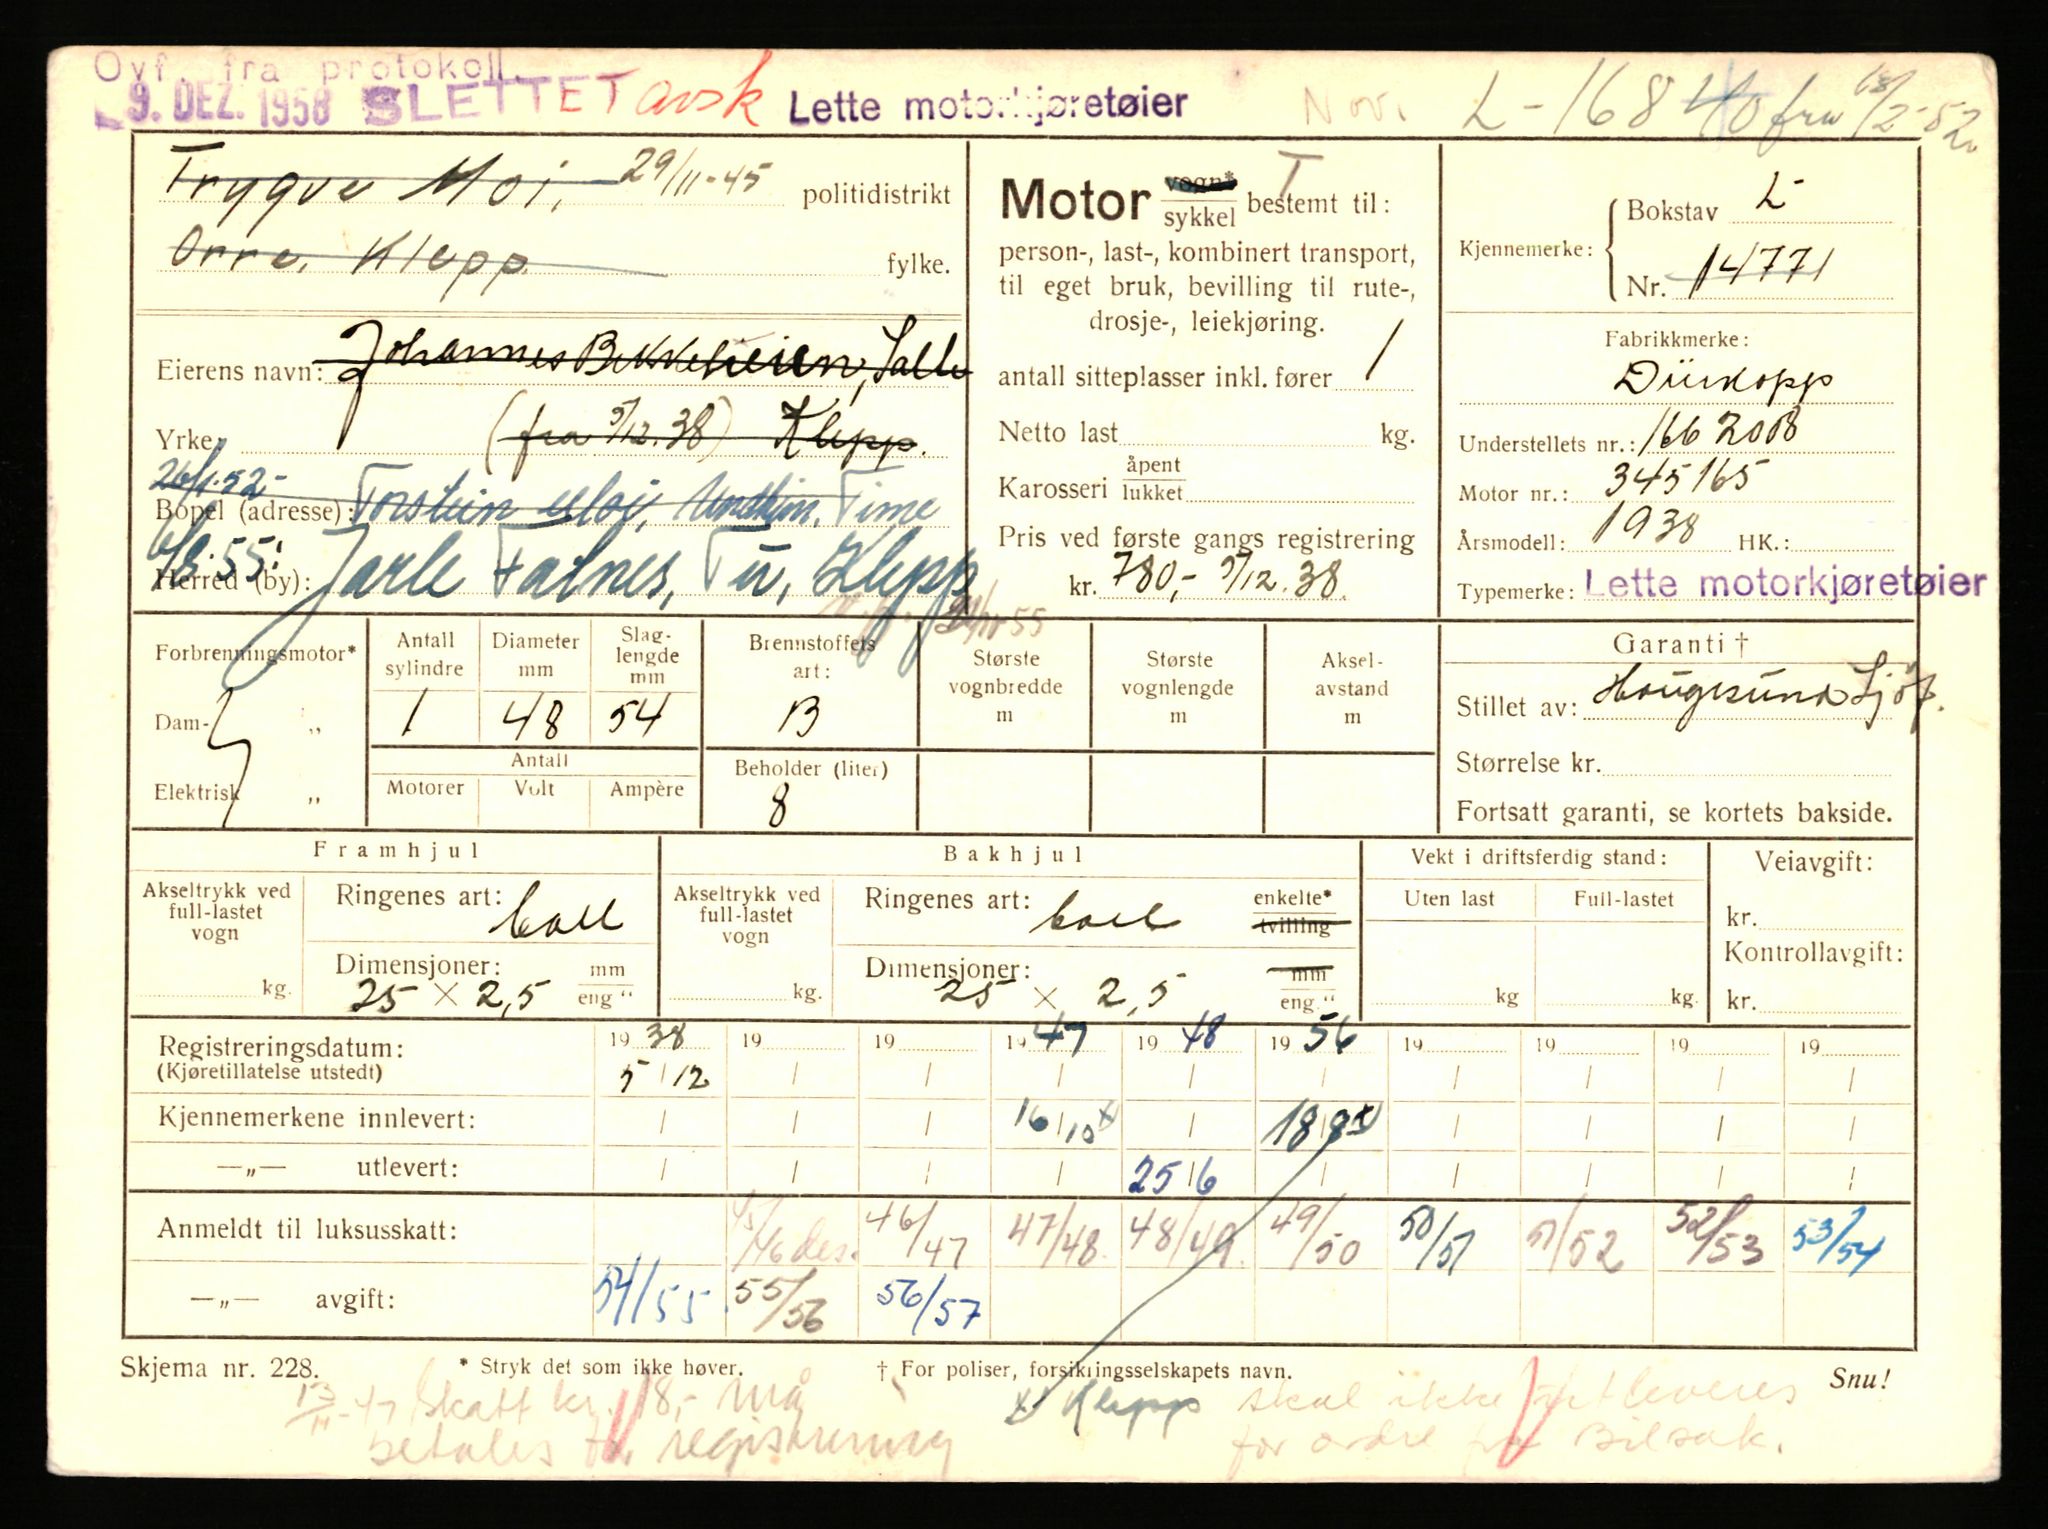 Ovf. fra protokoll.
9. DEZ. 1958 SLETTET avsk Lette motorkjøretøier Nov. L-16840 fra 18/2-52.
Trygve Moi, 29/11-45 politidistrikt
Orre, Klepp fylke.
Eierens navn: Johannes Bekkeheien, Salle
Yrke: (fra 5/12.38) Klepp.
26/1-52-
Bopel (adresse): Torstein Moi, Undheim. Time
6/8.55:
Herred (by): Jarle Falnes, Tu, Klepp
Motor vogn*/sykkel bestemt til:
T
person-, last-, kombinert transport,
til eget bruk, bevilling til rute-,
drosje-, leiekjøring.
antall sitteplasser inkl. fører 1
Netto last kg.
Karosseri åpent/lukket
Pris ved første gangs registrering
kr. 780,- 5/12.38.
Kjennemerke: Bokstav L-
Nr. 14771
Fabrikkmerke:
Dürkopp
Understellets nr.: 1662008
Motor nr.: 345165
Årsmodell: 1938 HK.:
Typemerke: Lette motorkjøretøier
Forbrenningsmotor*
Dam- „
Elektrisk „
Antall sylindre 1
Diameter mm 48
Slag-lengde mm 54
Antall
Motorer Volt Ampère
Brennstoffets art: B
Beholder (liter) 8
Største vognbredde m
Største vognlengde m
Aksel-avstand m
Garanti †
Stillet av: Haugesund Sjøf.
Størrelse kr.
Fortsatt garanti, se kortets bakside.
Framhjul
Akseltrykk ved full-lastet vogn kg.
Ringenes art: ball
Dimensjoner: 25 × 2,5 mm/eng "
Bakhjul
Akseltrykk ved full-lastet vogn kg.
Ringenes art: ball enkelte*/tvilling
Dimensjoner: 25 × 2,5 mm/eng."
Vekt i driftsferdig stand:
Uten last Full-lastet
kg kg.
Veiavgift:
kr.
Kontrollavgift:
kr.
Registreringsdatum: 1938 19 19 1947 1948 1956 19 19 19 19
(Kjøretillatelse utstedt) 5/12 / / / / / / / / /
Kjennemerkene innlevert: / / / 16/10x / 18/8x / / / /
—„— utlevert: / / / / 25/6 / / / / /
Anmeldt til luksusskatt: 45/46 des. 46/47 47/48. 48/49. 49/50 50/51 51/52 52/53 53/54
—„— avgift: 54/55. 55/56 56/57
Skjema nr. 228. * Stryk det som ikke høver. † For poliser, forsikringsselskapets navn. Snu!
13/11-47 Skatt kr. 18,- må
betales før registrering
x Klepp skal ikke utleveres
før ordre fra Bilsak.